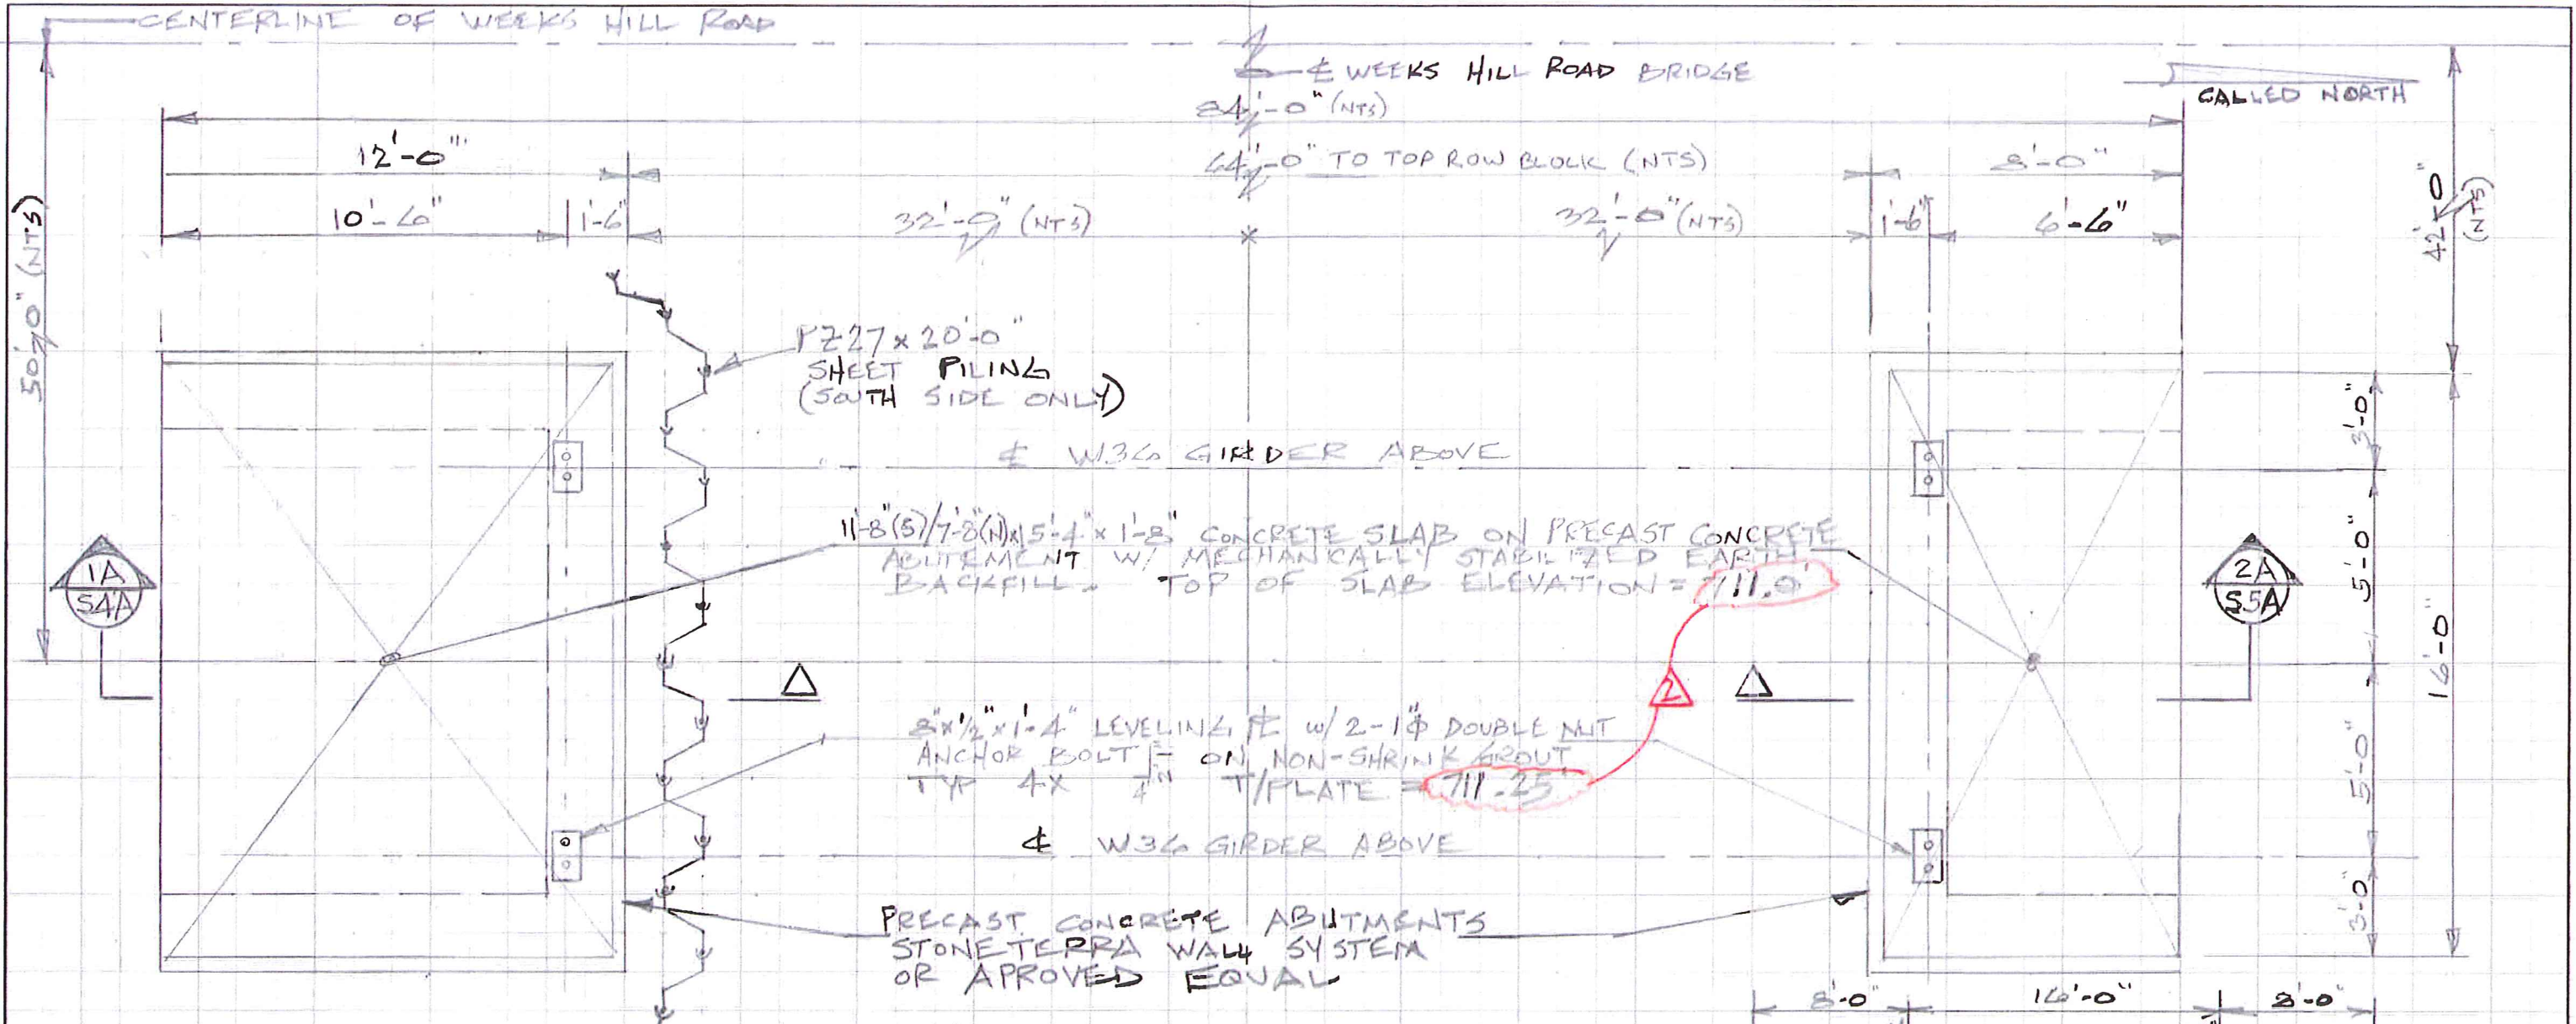 CENTERLINE OF WEEKS HILL ROAD
℄ WEEKS HILL ROAD BRIDGE
CALLED NORTH
84'-0" (NTS)
12'-0"
64'-0" TO TOP ROW BLOCK (NTS)
8'-0"
10'-6"
1'-6"
32'-0" (NTS)
32'-0" (NTS)
1'-6"
6'-6"
42'-0"
(NTS)
50'-0" (NTS)
PZ27 x 20'-0"
SHEET PILING
(SOUTH SIDE ONLY)
3'-0"
℄ W36 GIRDER ABOVE
11'-8"(S)/7'-8"(N)x15'-4" x 1'-8" CONCRETE SLAB ON PRECAST CONCRETE
ABUTEMENT W/ MECHANICALLY STABILIZED EARTH
BACKFILL - TOP OF SLAB ELEVATION = 711.0'
1A
S4A
2A
S5A
5'-0"
16'-0"
2
8" x 1/2" x 1'-4" LEVELING ℄ w/ 2-1"φ DOUBLE NUT
ANCHOR BOLT ON NON-SHRINK GROUT
TYP 4X T/PLATE = 711.25'
5'-0"
℄ W36 GIRDER ABOVE
3'-0"
PRECAST CONCRETE ABUTMENTS
STONETERRA WALL SYSTEM
OR APROVED EQUAL
8'-0"
16'-0"
8'-0"